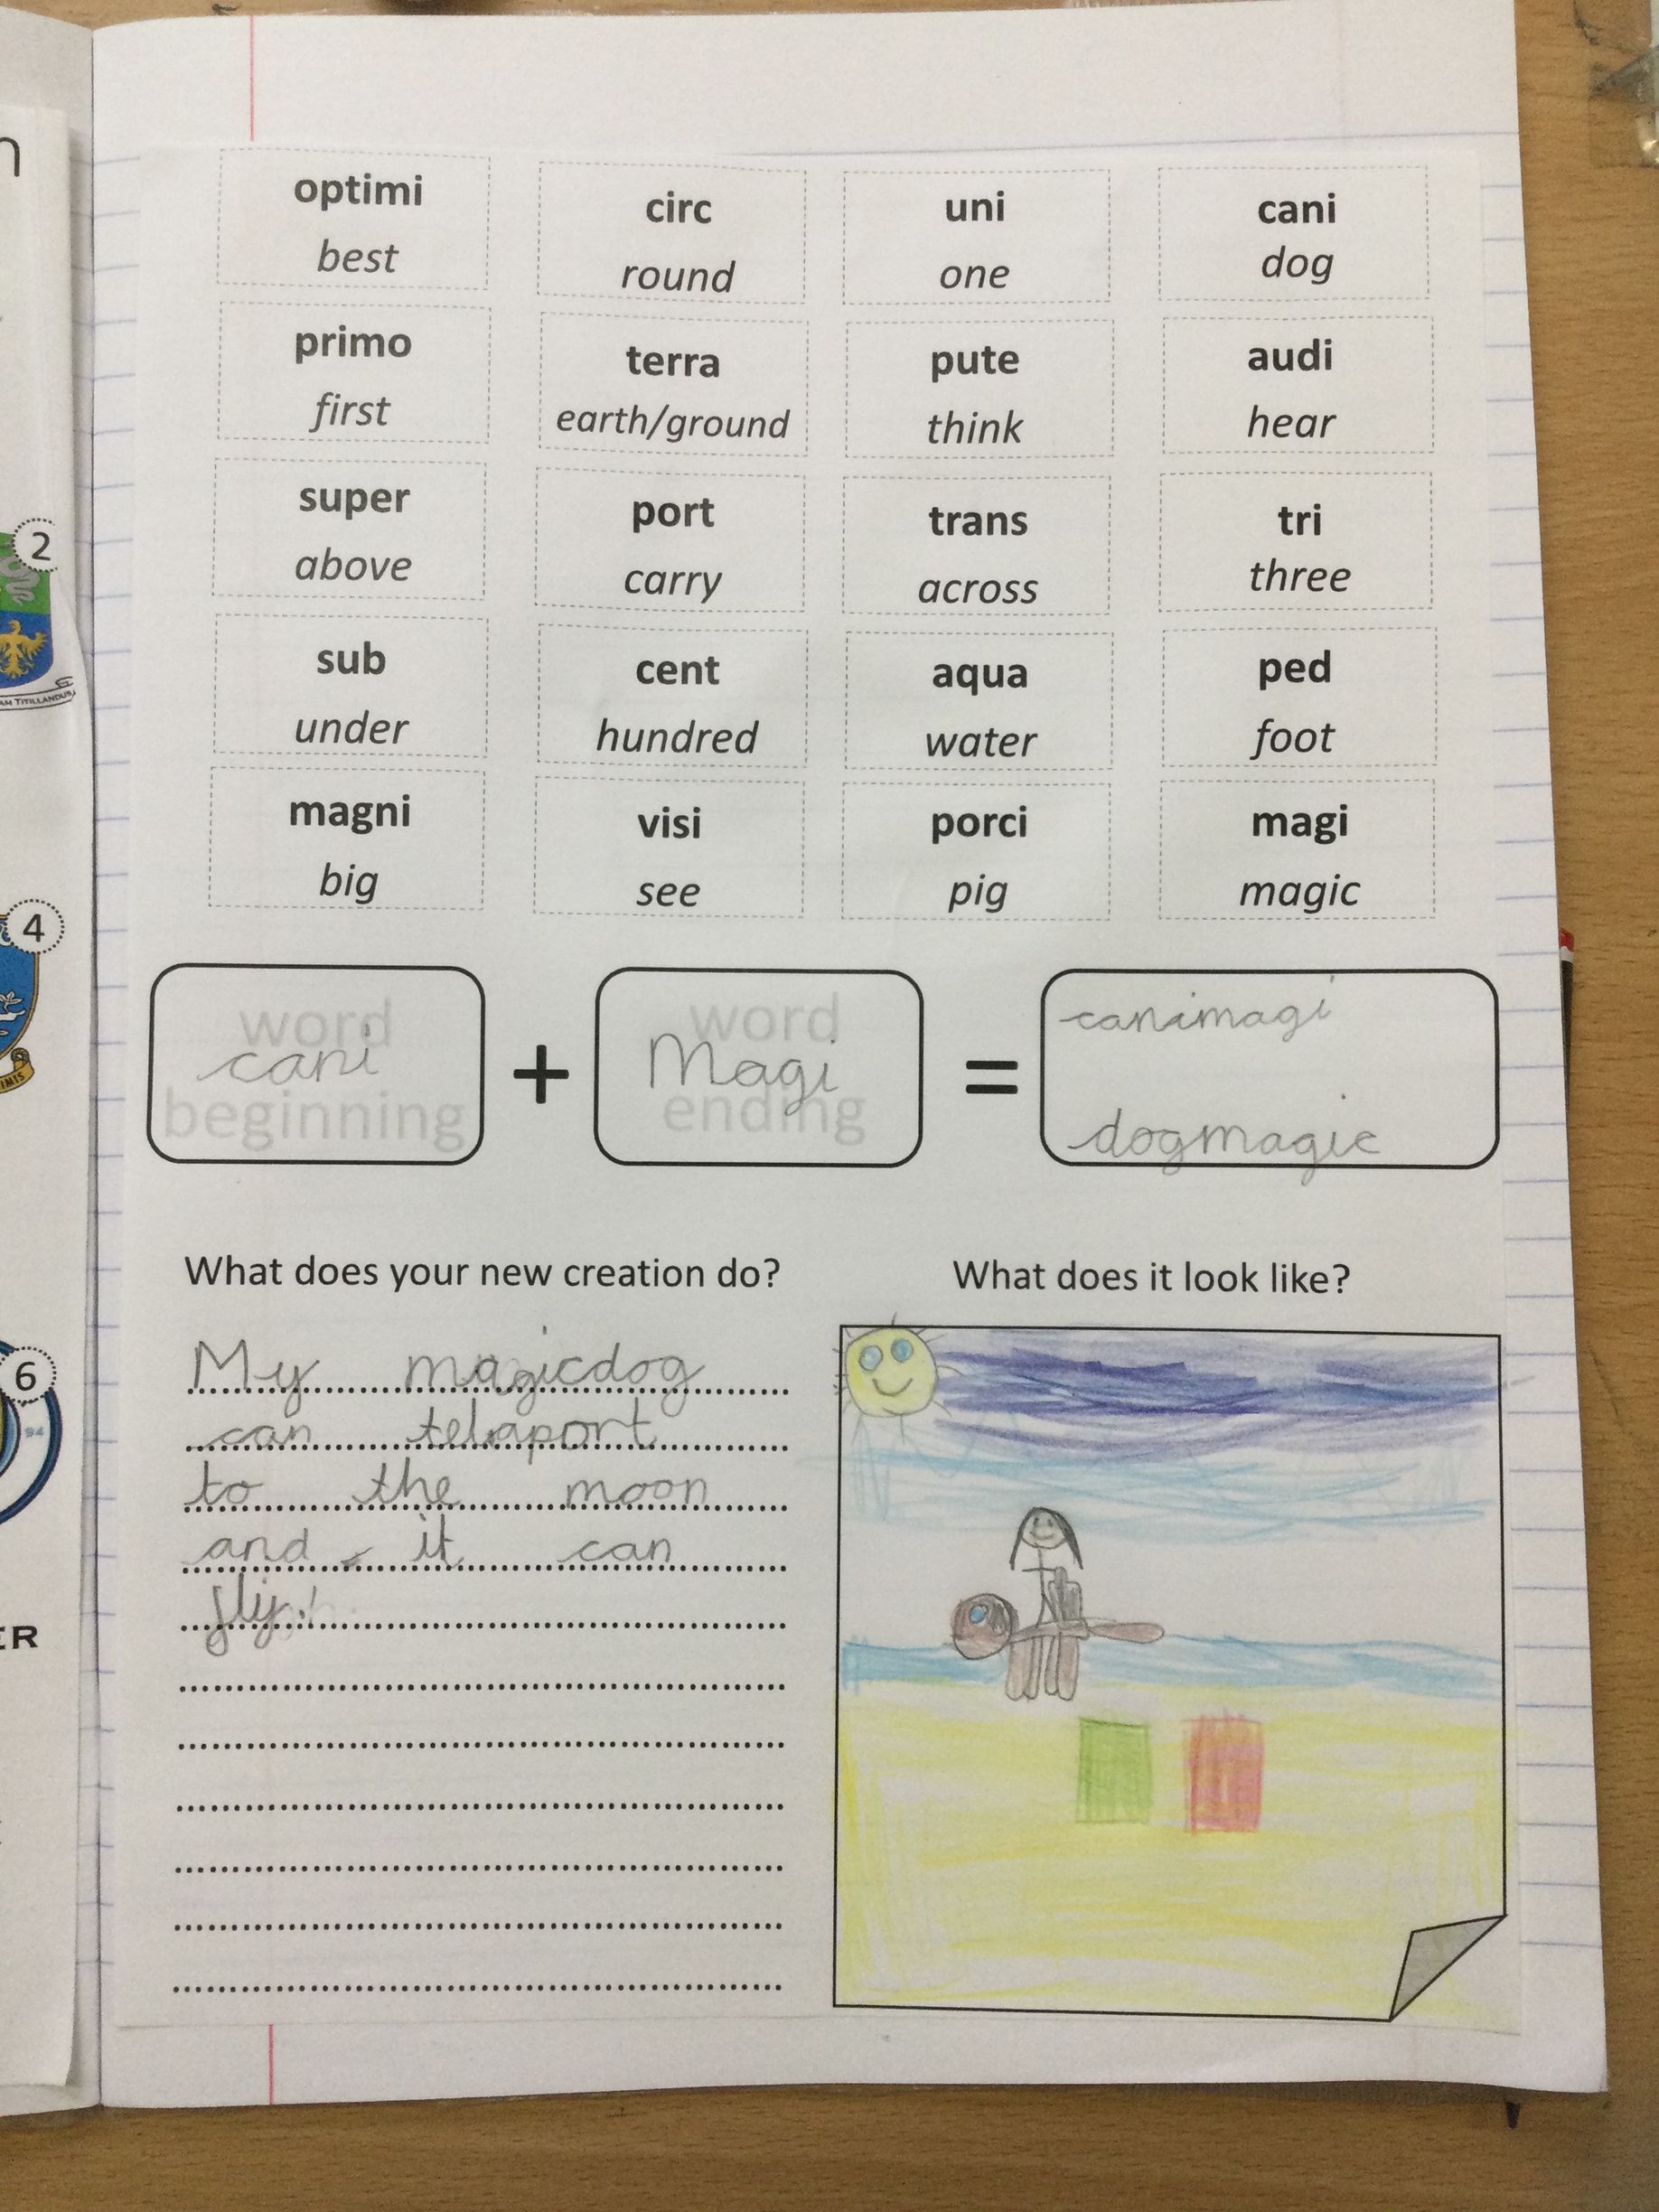 n
optimi
best
circ
round
uni
one
cani
dog
primo
first
terra
earth/ground
pute
think
audi
hear
super
above
port
carry
trans
across
tri
three
sub
under
cent
hundred
aqua
water
ped
foot
magni
big
visi
see
porci
pig
magi
magic
2
AM TITILLANDUS
4
IMIS
6
94
ER
word
beginning
cani
+
word
ending
Magi
=
canimagi
dogmagic
What does your new creation do?
My magicdog
can telaport
to the moon
and it can
fly!
What does it look like?